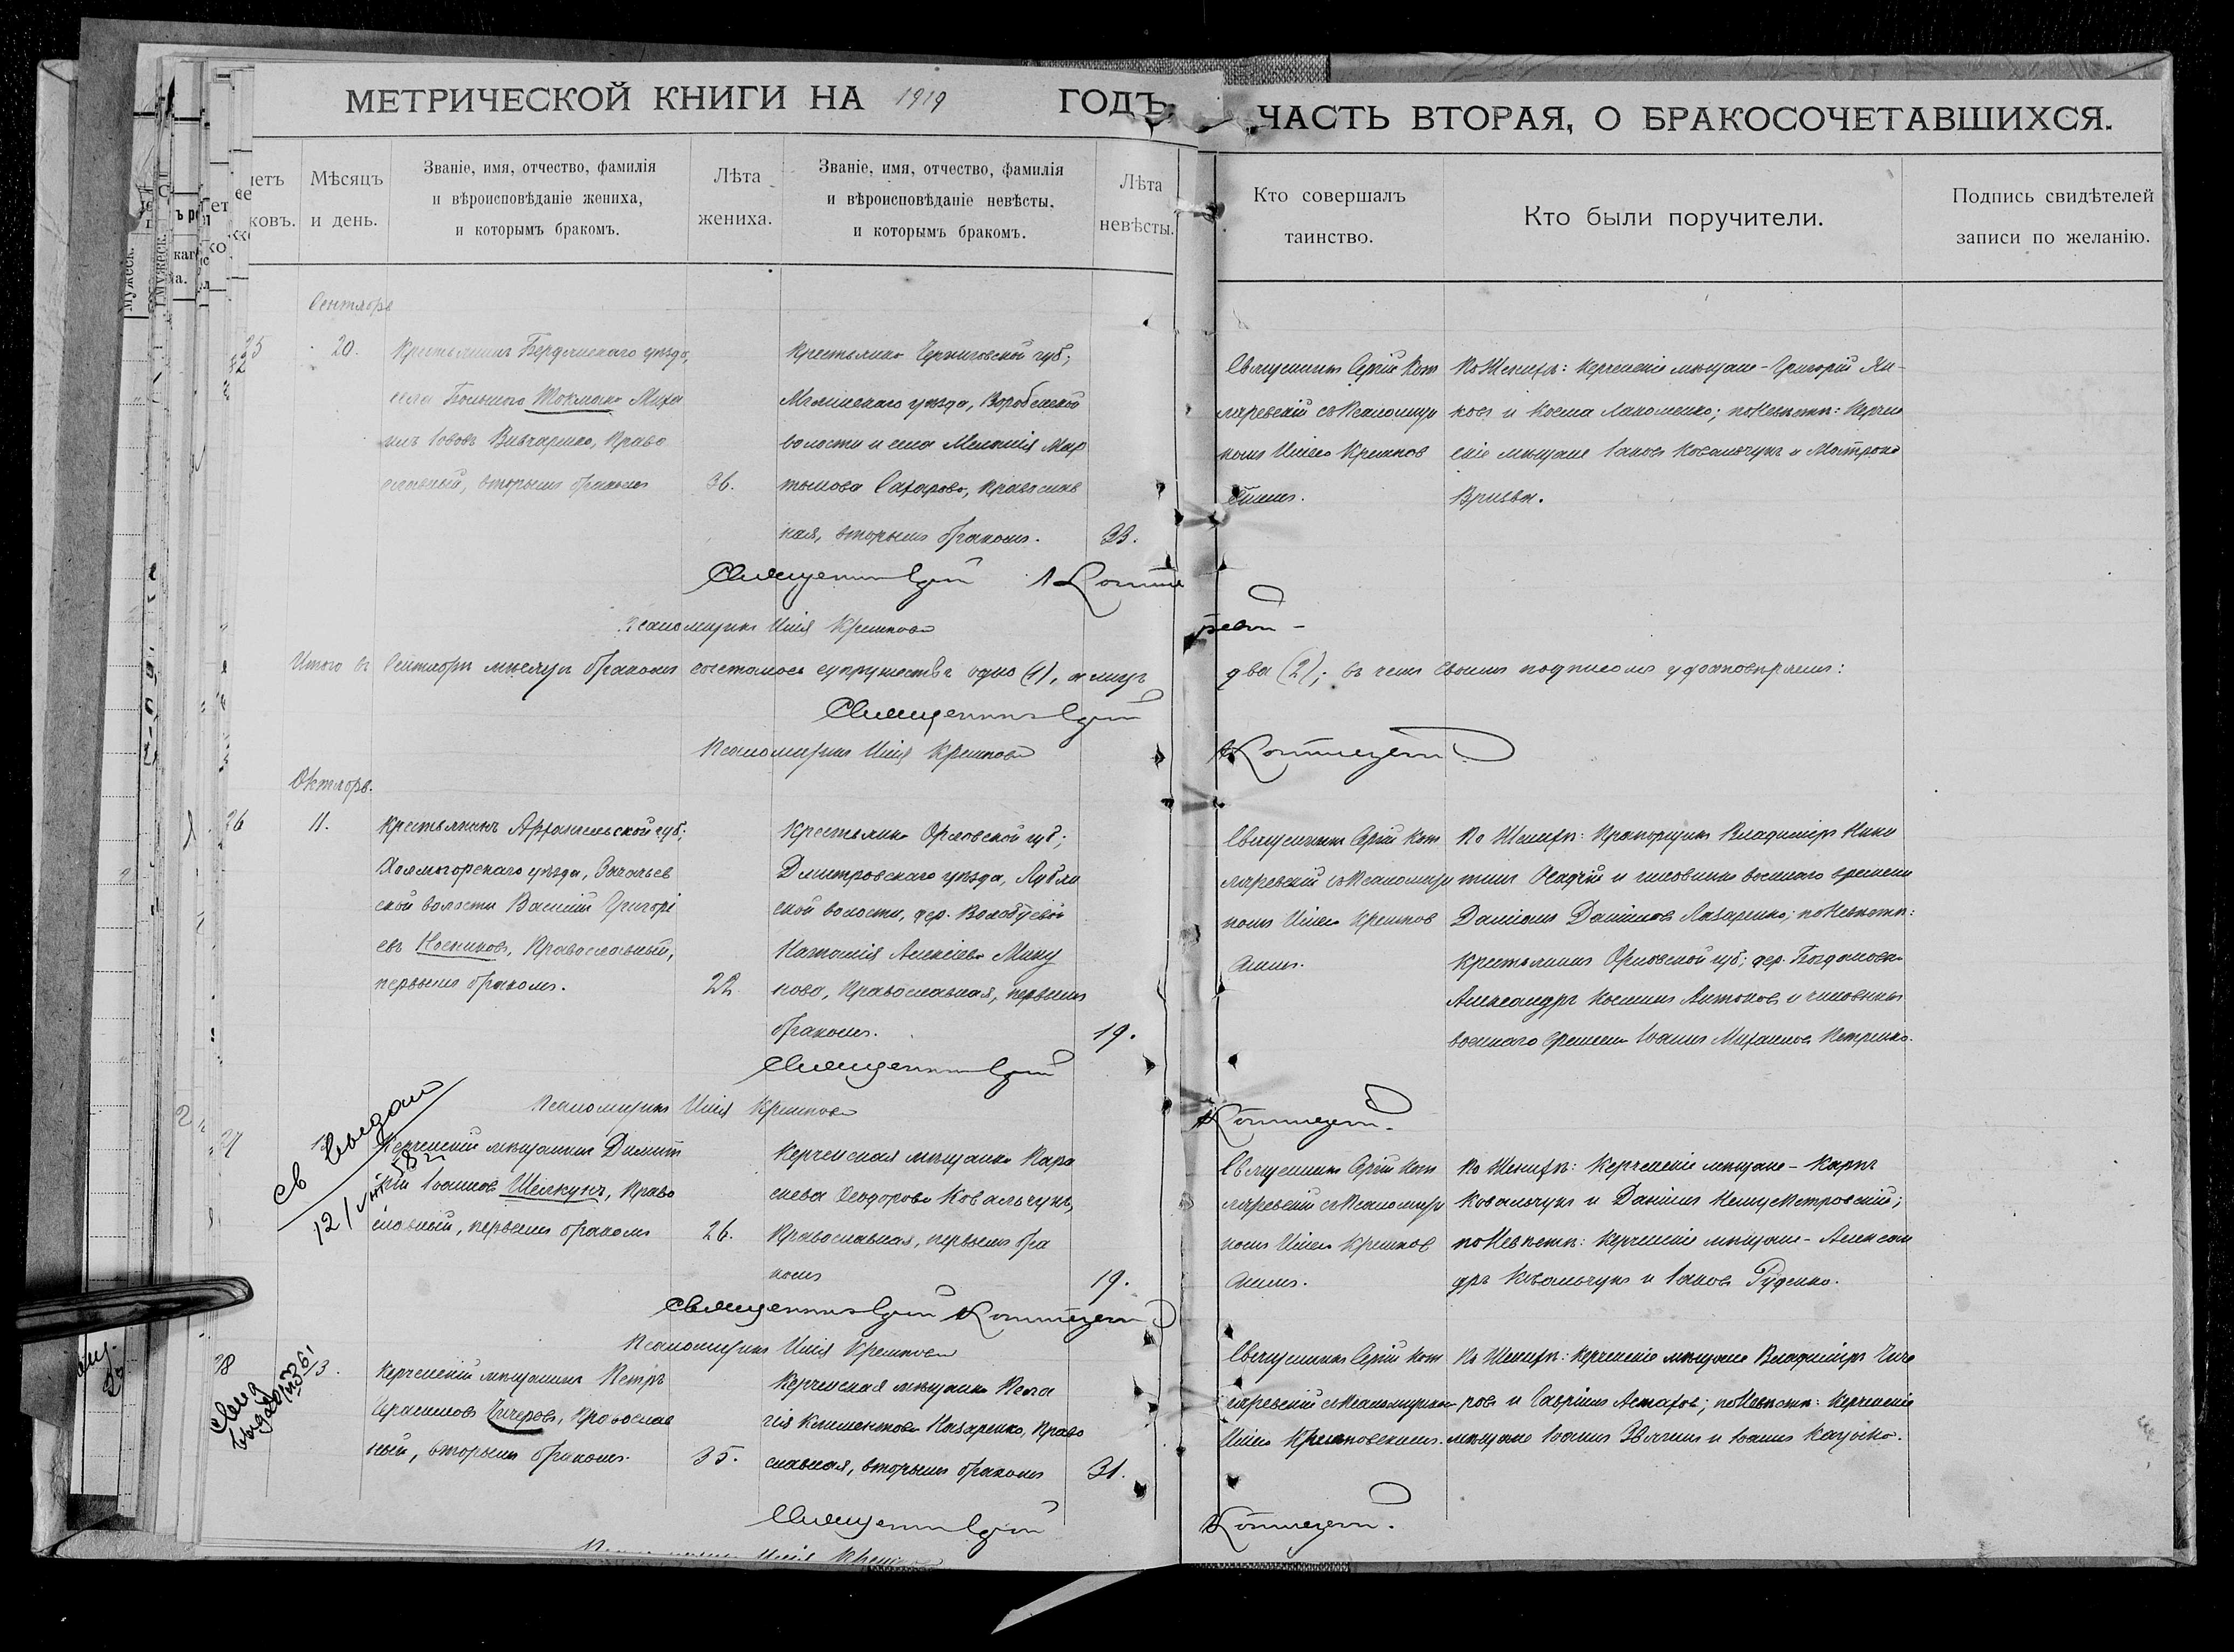 МЕТРИЧЕСКОЙ КНИГИ НА 1919 ГОДЪ,
ЧАСТЬ ВТОРАЯ, О БРАКОСОЧЕТАВШИХСЯ.
Мѣсяцъ
и день.
Званіе, имя, отчество, фамилія
и вѣроисповѣданіе жениха,
и которымъ бракомъ.
Лѣта
жениха.
Званіе, имя, отчество, фамилія
и вѣроисповѣданіе невѣсты,
и которымъ бракомъ.
Лѣта
невѣсты.
Кто совершалъ
таинство.
Кто были поручители.
Подпись свидѣтелей
записи по желанію.
Сентябрь
25
20.
Крестьянинъ Бердянскаго уѣзда,
села Большого Токмака Миха
илъ Іововъ Вивчаренко, Право
славный, вторымъ бракомъ
36.
Крестьянка Черниговской губ;
Мглинскаго уѣзда, Воробьевской
волости и села Меланія Мар
тынова Сахарова, Православ
ная, вторымъ бракомъ.
33.
Священникъ Сергій Кот
ляревскій съ Псаломщи
комъ Иліею Крешков
По Женихѣ: Керченскіе мѣщане - Григорій Яц
ковъ и Косма Лахоменко; по Невѣстѣ: Керчен
скіе мѣщане Іаковъ Ковальчукъ и Матрона
Священникъ Сергій Котляревскій
Псаломщикъ Илія
Итого въ Сентябрѣ мѣсяцѣ бракомъ сочеталось супружествъ одно (1), а лицъ
два (2); въ чемъ своимъ подписомъ удостовѣряемъ:
Священникъ Сергій
Котляревскій
Псаломщикъ Илія
Октябрь.
26
11.
Крестьянинъ Архангельской губ;
Холмогорскаго уѣзда, Зачачьев
ской волости Василій Григорі
евъ Носниковъ, Православный,
первымъ бракомъ.
22.
Крестьянка Орловской губ;
Дмитровскаго уѣзда, Лубян
ской волости, дер. Волобуевой
Наталія Алексіева Мину
кова, Православная, первымъ
бракомъ.
19.
Священникъ Сергій Кот
ляревскій съ Псаломщи
комъ Иліею Крешков
По Женихѣ: Прапорщикъ Владиміръ Ники
тинъ Осадчій и чиновникъ военнаго времени
Даміанъ Даниловъ Лазаренко; по Невѣстѣ:
крестьянинъ Орловской губ; дер. Богдановки
Александръ Косминъ Антоновъ и чиновникъ
военнаго времени Іоаннъ Михаиловъ Петренко.
Священникъ Сергій
Псаломщикъ Илія
Котляревскій.
27
Св выдан
Керченскій мѣщанинъ Димит
рій Іоанновъ Шелкунъ, Право
славный, первымъ бракомъ
26.
Керченская мѣщанка Пара
скева Ѳеодорова Ковальчукъ,
Православная, первымъ бра
комъ
19.
Священникъ Сергій Кот
ляревскій съ Псаломщи
комъ Иліею Крешков
По Женихѣ: Керченскіе мѣщане - Карпъ
Ковальчукъ и Даніилъ
по Невѣстѣ: Керченскіе мѣщане - Алексан
дръ Ковальчукъ и Іаковъ Руденко.
Священникъ Сергій Котляревскій
Псаломщикъ Илія
28
13.
Керченскій мѣщанинъ Петръ
Герасимовъ Чичеровъ, Православ
ный, вторымъ бракомъ.
35.
Керченская мѣщанка Пела
гія Климентова Назаренко, Право
славная, вторымъ бракомъ
31.
Священникъ Сергій Кот
ляревскій съ Псаломщикомъ
Иліею
По Женихѣ: Керченскіе мѣщане Владиміръ Чиче
ровъ и Гавріилъ Астаховъ; по Невѣстѣ: Керченскіе
мѣщане Іоаннъ Звягинъ и Іоаннъ
Священникъ Сергій
Котляревскій.